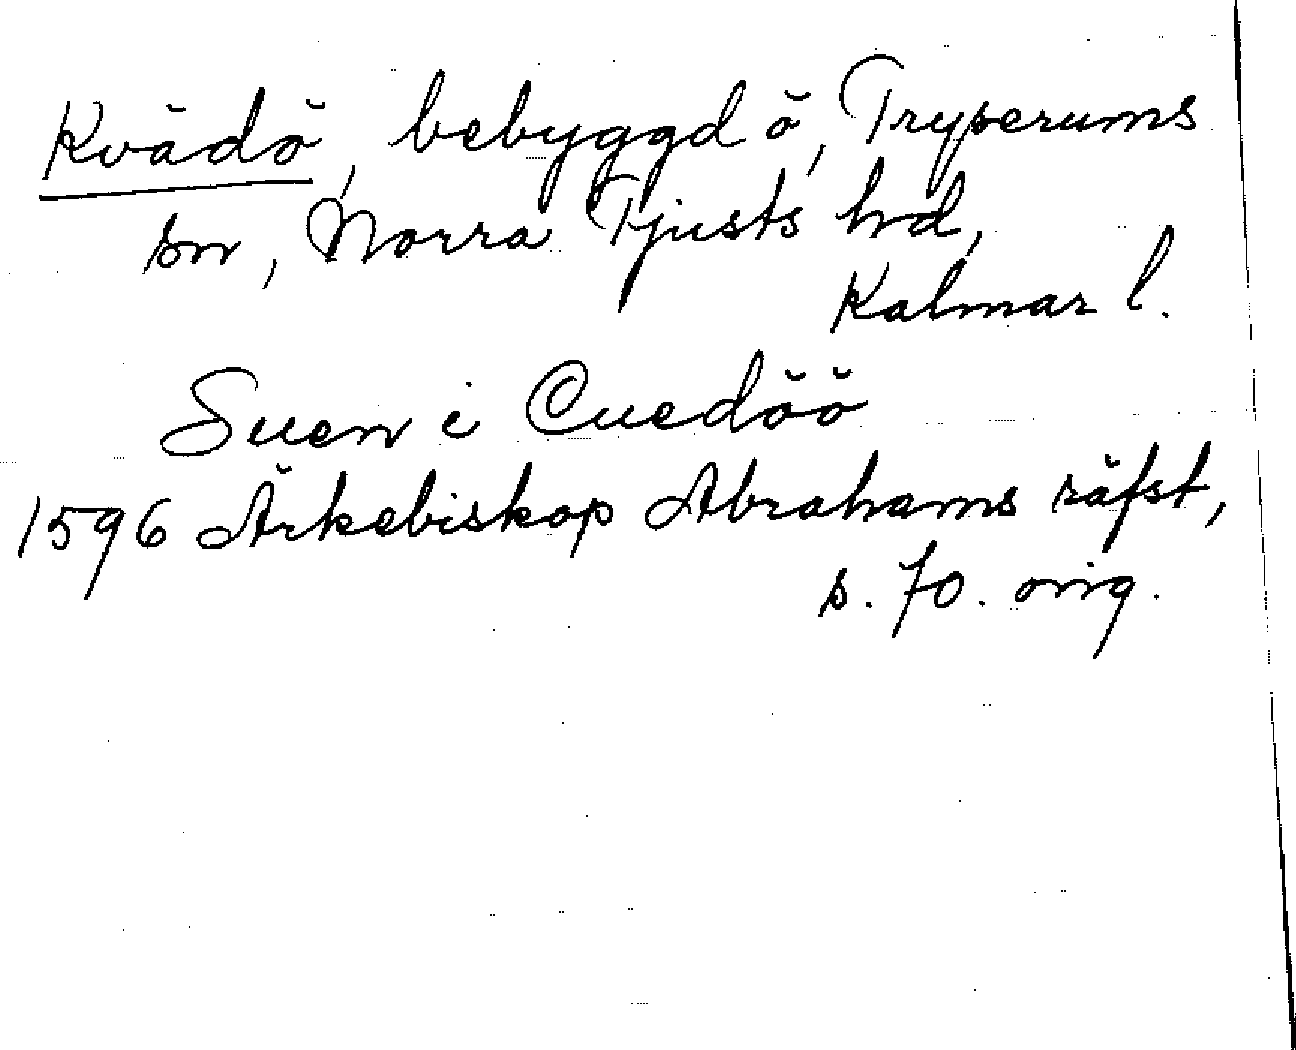 Kvädö, bebyggd ö, Tryserums
sn, Norra Tjusts hd,
Kalmar l.
Suen i Cuedöö
1596 Ärkebiskop Abrahams räfst,
s. 70. orig.